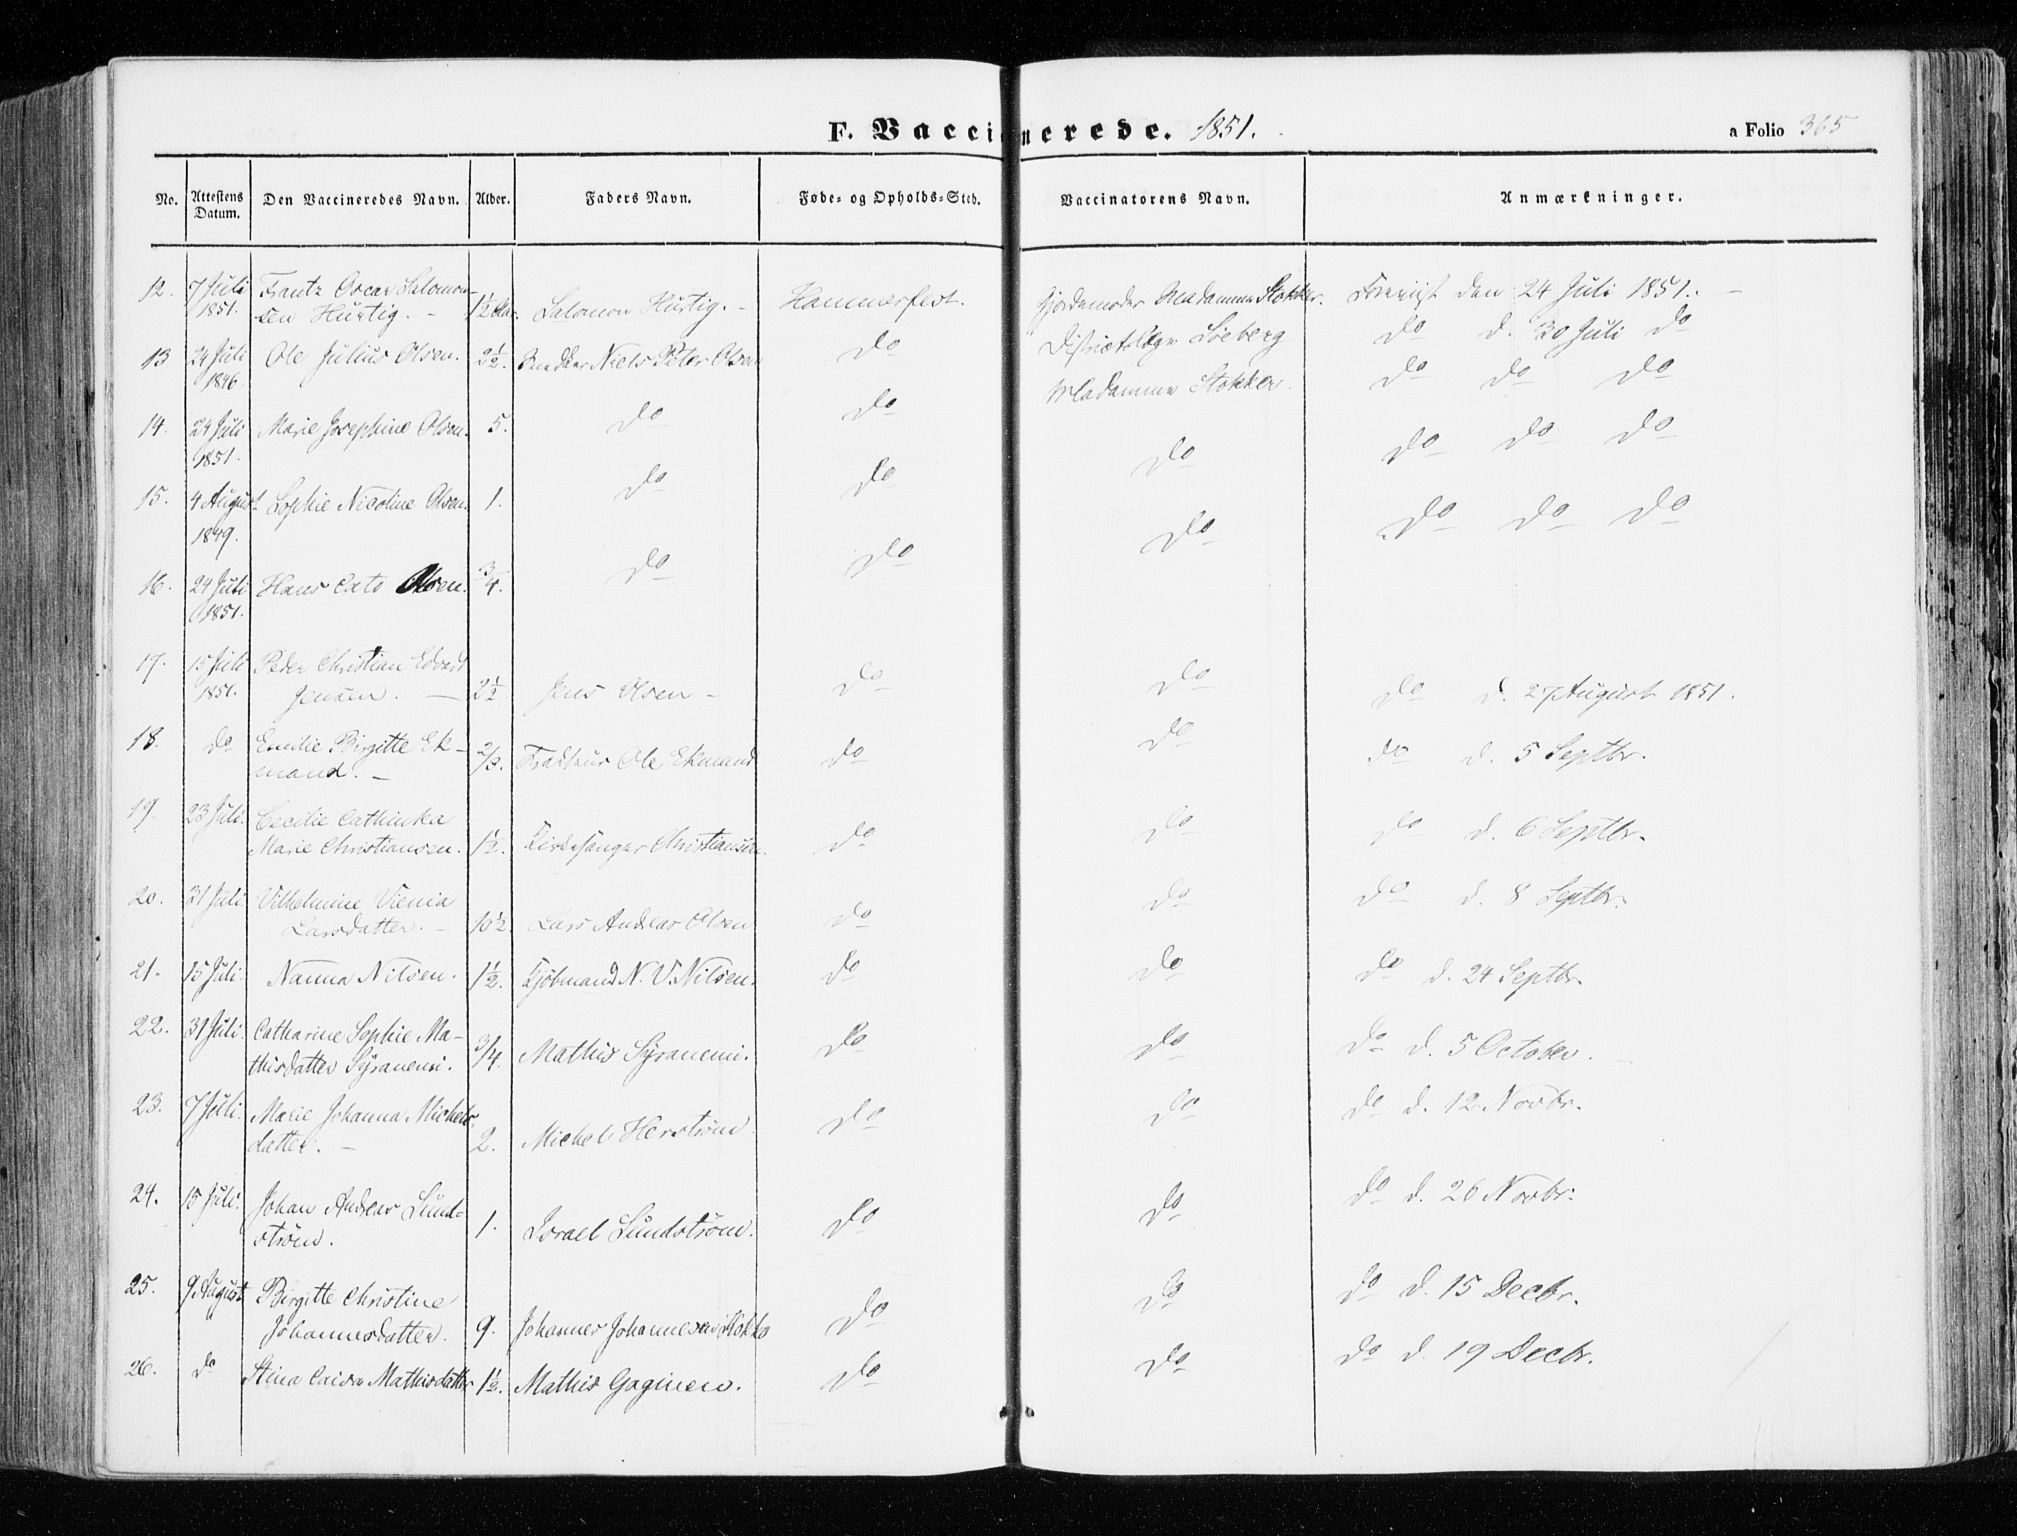 F. Vaccinerede. 1851.
a Folio 365
No. Attestens Datum. Den Vaccineredes Navn. Alder. Faders Navn. Føde- og Opholds-Sted. Vaccinatorens Navn. Anmærkninger.
12. 7 Juli Frantz Oscar Salomon-
1851. sen Hurtig. - 1½ Salomon Hurtig. - Hammerfest. Gjordemoder Madamme Stokker. Foreviist den 24 Juli 1851. -
13 24 Juli Ole Julius Olsen. 2½. Niels Peter Olsen do Districtslæge do d. 30 Juli do
1846.
14. 24 Juli Marie Josephine Olsen. 5. do do Madamme Stokker. do do do
1851.
15. 4 August Sophie Nicoline Olsen. 1. do do do do do do
1849.
16. 24 Juli Hans Cato Olsen. ¾. do do do do do do
1851.
17. 15 Juli Peder Christian Edvard
1851. Jensen. - 2½ Jens Olsen - do do do d. 27 August 1851.
18. do Emilie Birgitte Ek-
mand. - Ole Ekmand do do do d. 5 Septbr.
19. 23 Juli. Cecilie Cathinka
Marie Christiansen. 1½. Kirkesanger Christiansen. do do do d. 6 Septbr.
20. 31 Juli Vilhelmine Vienia
Larsdatter. - 10½ Lars Andreas Olsen do do do d. 8 Septbr.
21. 15 Juli. Nanna Nilsen. 1½. Kjøbmand N. V. Nilsen. do do do d. 24 Septbr.
22. 31 Juli. Catharine Sophie Ma-
thisdatter Syranemi. ¾. Mathis Syranemi. do do do d. 5 October. -
23. 7 Juli. Marie Johanna Michels-
datter. - 2. Michel Herström do do do d. 12 Novbr.
24. 15 Juli. Johan Andreas Lund-
ström. 1. Israel Lundström. do do do d. 26 Novbr.
25. 9 August Birgitte Christine
Johannesdatter. 9. Johannes Johannesen do do do d. 15 Decbr.
26. do Stina Caisa Mathisdatter 1½. Mathis do do do d. 19 Decbr.